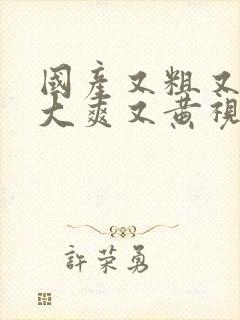 國產又粗又
大爽又黃視
許荣勇